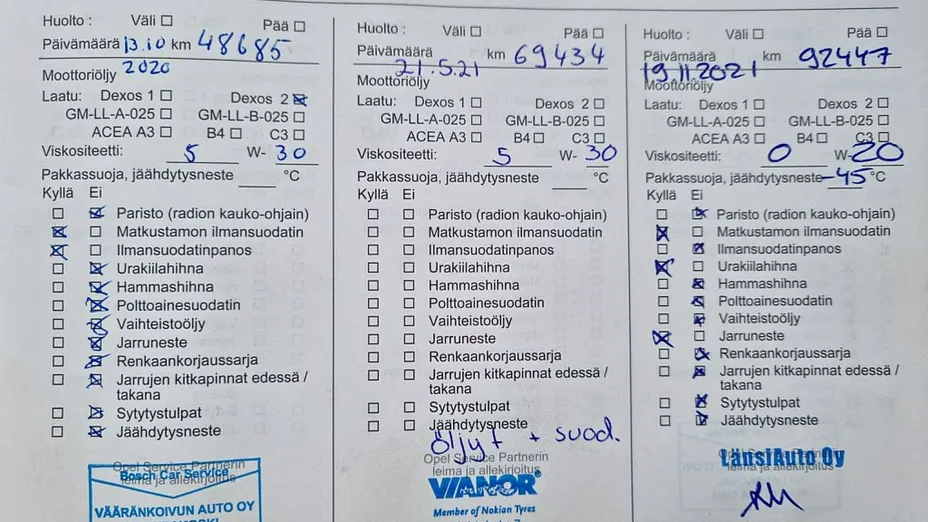 Huolto : Väli ☐ Pää ☐
Päivämäärä 13.10 km 48685
2020
Moottoriöljy
Laatu: Dexos 1 ☐ Dexos 2 ☒
GM-LL-A-025 ☐ GM-LL-B-025 ☐
ACEA A3 ☐ B4 ☐ C3 ☐
Viskositeetti: 5 W- 30
Pakkassuoja, jäähdytysneste °C
Kyllä Ei
☐ ☒ Paristo (radion kauko-ohjain)
☒ ☐ Matkustamon ilmansuodatin
☒ ☐ Ilmansuodatinpanos
☐ ☒ Urakiilahihna
☐ ☒ Hammashihna
☐ ☒ Polttoainesuodatin
☐ ☒ Vaihteistoöljy
☐ ☒ Jarruneste
☐ ☒ Renkaankorjaussarja
☐ ☒ Jarrujen kitkapinnat edessä /
takana
☐ ☒ Sytytystulpat
☐ ☒ Jäähdytysneste
Opel Service Partnerin
leima ja allekirjoitus
Bosch Car Service
VÄÄRÄNKOIVUN AUTO OY
Huolto : Väli ☐ Pää ☐
Päivämäärä km 69434
21.5.21
Moottoriöljy
Laatu: Dexos 1 ☐ Dexos 2 ☐
GM-LL-A-025 ☐ GM-LL-B-025 ☐
ACEA A3 ☐ B4 ☐ C3 ☐
Viskositeetti: 5 W- 30
Pakkassuoja, jäähdytysneste °C
Kyllä Ei
☐ ☐ Paristo (radion kauko-ohjain)
☐ ☐ Matkustamon ilmansuodatin
☐ ☐ Ilmansuodatinpanos
☐ ☐ Urakiilahihna
☐ ☐ Hammashihna
☐ ☐ Polttoainesuodatin
☐ ☐ Vaihteistoöljy
☐ ☐ Jarruneste
☐ ☐ Renkaankorjaussarja
☐ ☐ Jarrujen kitkapinnat edessä /
takana
☐ ☐ Sytytystulpat
☐ ☐ Jäähdytysneste
öljyt + suod.
Opel Service Partnerin
leima ja allekirjoitus
VIANOR
Member of Nokian Tyres
Huolto : Väli ☐ Pää ☐
Päivämäärä km 92447
19 11 2021
Moottoriöljy
Laatu: Dexos 1 ☐ Dexos 2 ☐
GM-LL-A-025 ☐ GM-LL-B-025 ☐
ACEA A3 ☐ B4 ☐ C3 ☐
Viskositeetti: 0 W- 20
Pakkassuoja, jäähdytysneste -45 °C
Kyllä Ei
☐ ☒ Paristo (radion kauko-ohjain)
☒ ☐ Matkustamon ilmansuodatin
☐ ☒ Ilmansuodatinpanos
☒ ☐ Urakiilahihna
☐ ☒ Hammashihna
☐ ☒ Polttoainesuodatin
☐ ☒ Vaihteistoöljy
☒ ☐ Jarruneste
☐ ☒ Renkaankorjaussarja
☐ ☒ Jarrujen kitkapinnat edessä /
takana
☐ ☒ Sytytystulpat
☐ ☒ Jäähdytysneste
LänsiAuto Oy
Opel Service Partnerin
leima ja allekirjoitus